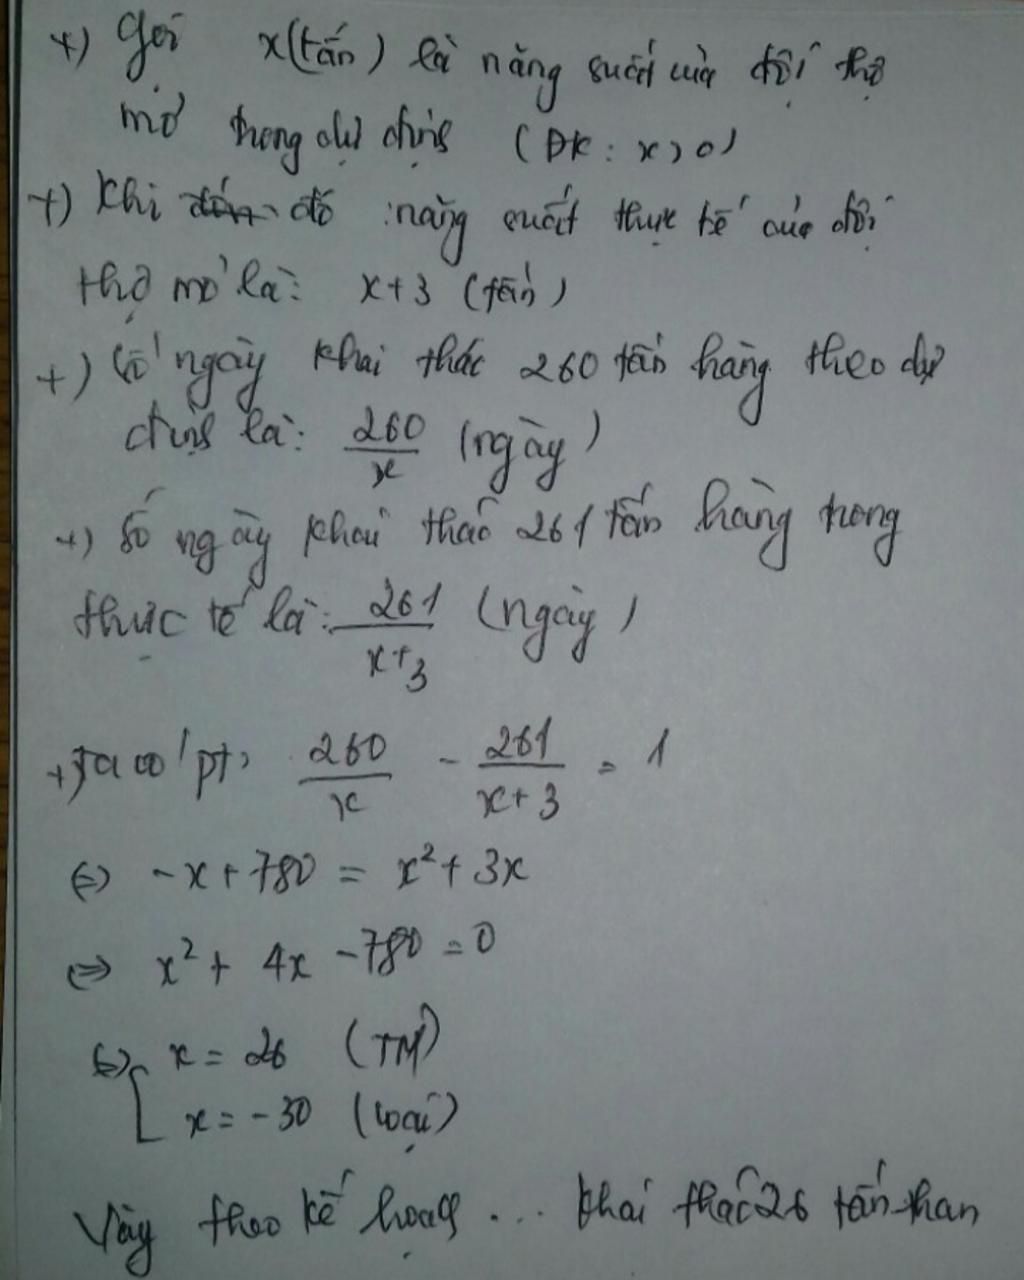 +) Gọi x(tấn) là năng suất của đội thợ
mỏ trong dự định (ĐK: x>0)
+) Khi đó năng suất thực tế của đội
thợ mỏ là: x+3 (tấn)
+) Số ngày khai thác 260 tấn hàng theo dự
định là: 260/x (ngày)
+) Số ngày khai thác 261 tấn hàng trong
thực tế là: 261/(x+3) (ngày)
+) Ta có pt: 260/x - 261/(x+3) = 1
⇔ -x + 780 = x² + 3x
⇔ x² + 4x - 780 = 0
⇔ [ x = 26 (TM)
x = -30 (loại)
Vậy theo kế hoạch ... khai thác 26 tấn than